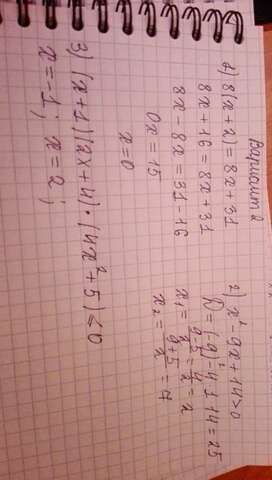 Вариант 2
1) 8(x+2)=8x+31
8x+16=8x+31
8x-8x=31-16
0x=15
x=0
2) x²-9x+14>0
D=(-9)²-4·1·14=25
x₁=(9-5)/2=4/2=2
x₂=(9+5)/2=7
3) (x+1)(2x+4)·(4x²+5)<0
x=-1; x=2;